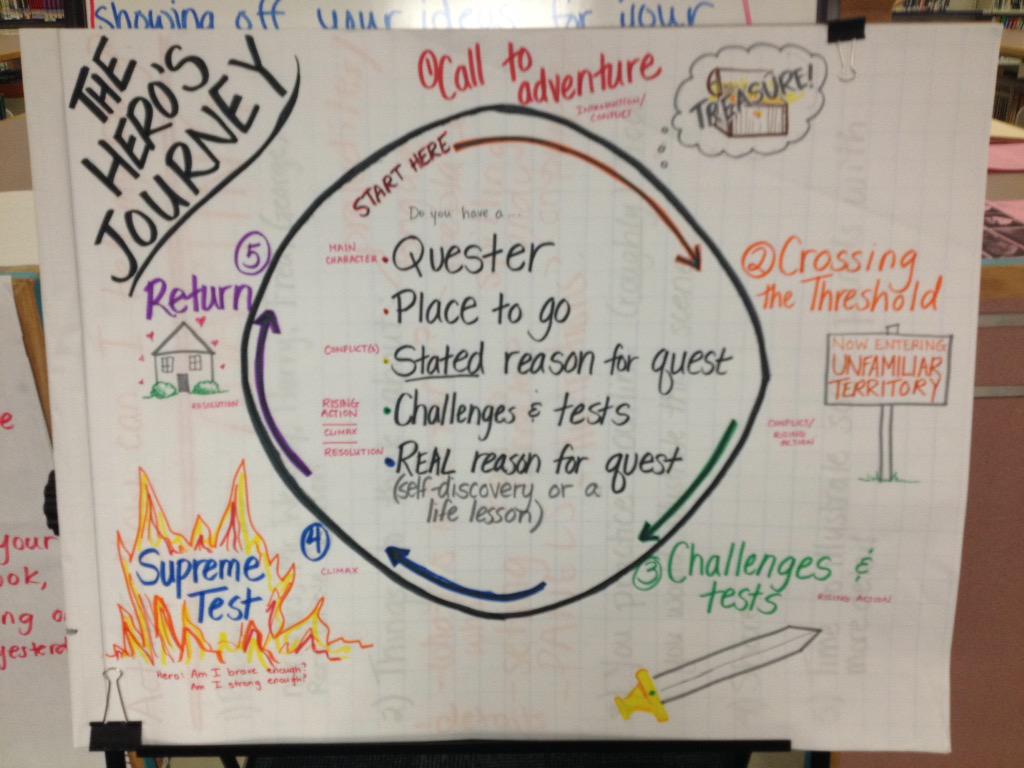 showing off your ideas for your
THE
HERO'S
JOURNEY
① Call to
adventure
INTRODUCTION/
CONFLICT
TREASURE!
START HERE
Do you have a...
MAIN
CHARACTER
• Quester
• Place to go
CONFLICT(S)
• Stated reason for quest
RISING
ACTION
CLIMAX
RESOLUTION
• Challenges & tests
• REAL reason for quest
(self-discovery or a
life lesson)
② Crossing
the Threshold
NOW ENTERING
UNFAMILIAR
TERRITORY
CONFLICT/
RISING
ACTION
③ Challenges &
tests
RISING ACTION
④
CLIMAX
Supreme
Test
Hero: Am I brave enough?
Am I strong enough?
⑤
Return
RESOLUTION
your